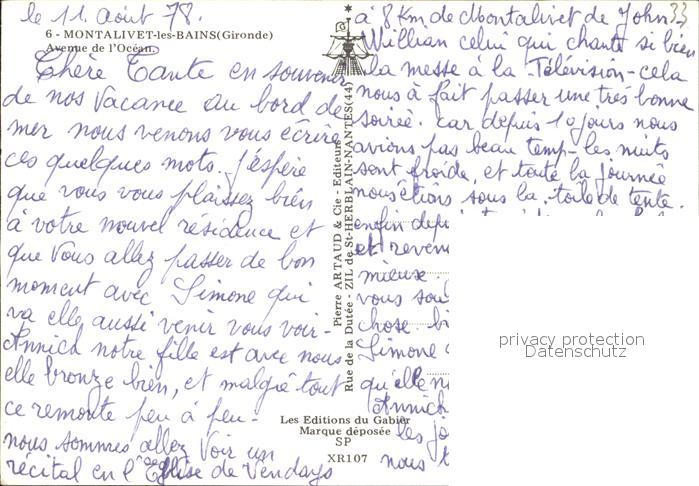 le 11. Août 78.
6 - MONTALIVET-les-BAINS (Gironde)
Avenue de l'Océan.
Chère Tante en souvenir
de nos vacance au bord de
mer nous venons vous écrire
ces quelques mots. J'éspère
que vous vous plaissez bien
à votre nouvel résidence et
que vous allez passer de bon
moment avec Simone qui
va elle aussi venir vous voir.
Annick notre fille est avec nous
elle bronze bien, et malgré tout
ce remonte peu à peu.
nous sommes allez voir un
récital en l'Eglise de Vendays
Pierre ARTAUD & Cie - Editeurs
Rue de la Dutée - ZIL de St-HERBLAIN-NANTES (44)
33
à 8 Km de Montalivet de John
Willian celui qui chante si bien
la messe à la Télévision - cela
nous à fait passer une très bonne
soireè. car depuis 10 jours nous
avions pas beau temp - les nuits
sont froide, et toute la journée
nous êtions sous la toile de tente.
enfin
et
mieux.
vous
chose
Simone
qu'elle
Annick
les
nous
Les Editions du Gabier
Marque déposée
SP
XR107
privacy protection
Datenschutz